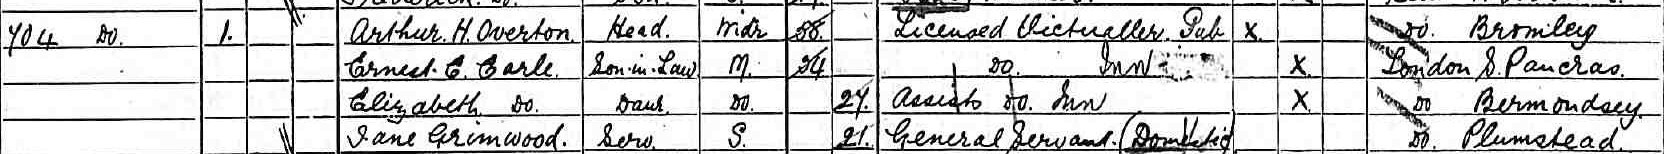 704 Do. 1. Arthur. H. Overton. Head. Mdr 58. Licensed Victualler. Pub X. Do. Bromley
Ernest. E. Earle. Son-in-Law M. 24 Do. Inn X. London S. Pancras.
Elizabeth Do. Daur. Do. 27. Assists Do. Inn X Do Bermondsey.
Jane Grimwood. Serv. S. 21. General Servant. (Domestic) Do. Plumstead.